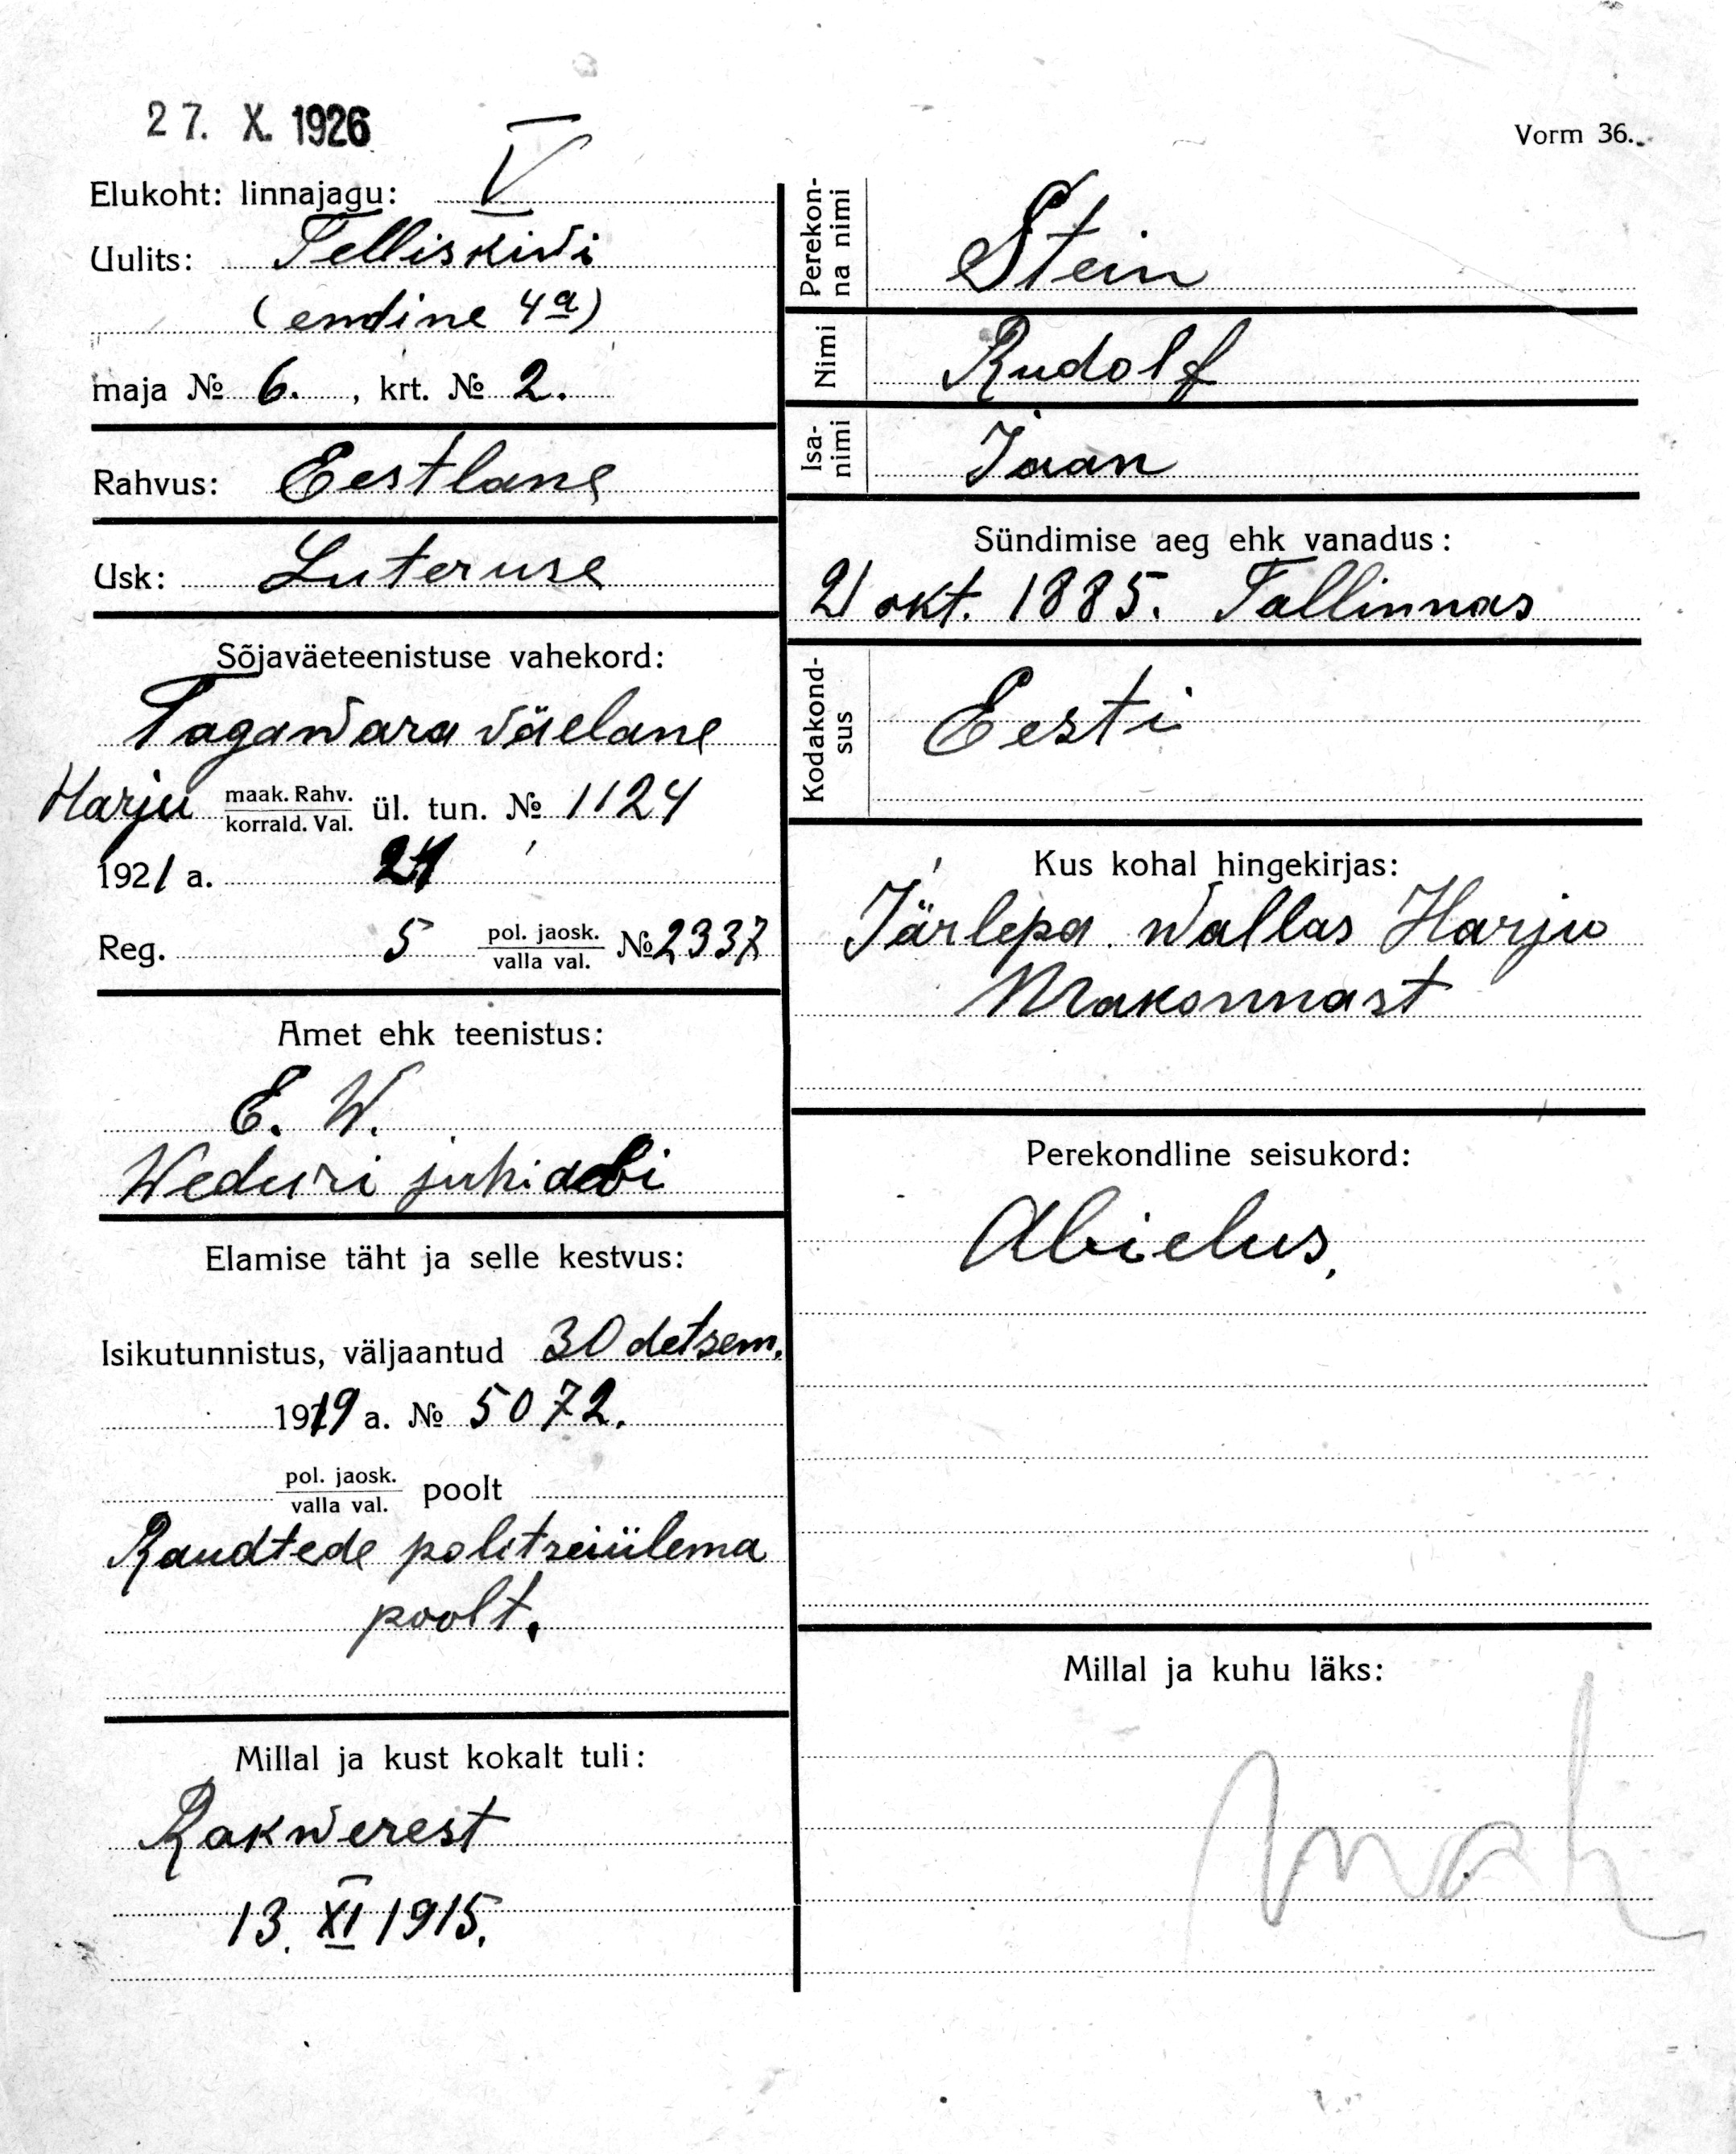 27. X. 1926
Vorm 36.
Elukoht: linnajagu: V
Uulits: Telliskivi
(endine 4a)
maja № 6. , krt. № 2.
Rahvus: Eestlane
Usk: Luteruse
Sõjaväeteenistuse vahekord:
Tagavara väelane
Harju maak. Rahv. korrald. Val. ül. tun. № 1124
1921 a.
Reg. 5 pol. jaosk. valla val. № 2337
Amet ehk teenistus:
E. W.
Weduri juhi abi
Elamise täht ja selle kestvus:
Isikutunnistus, väljaantud 30 detsem.
1919 a. № 5072.
pol. jaosk. valla val. poolt
Raudtede politseiülema
poolt.
Millal ja kust kokalt tuli:
Rakwerest
13. XI 1915.
Perekonna nimi Stein
Nimi Rudolf
Isanimi Jaan
Sündimise aeg ehk vanadus:
21 okt. 1885. Tallinnas
Kodakondsus Eesti
Kus kohal hingekirjas:
Järlepa wallas Harju
Makonnast
Perekondline seisukord:
Abielus,
Millal ja kuhu läks: